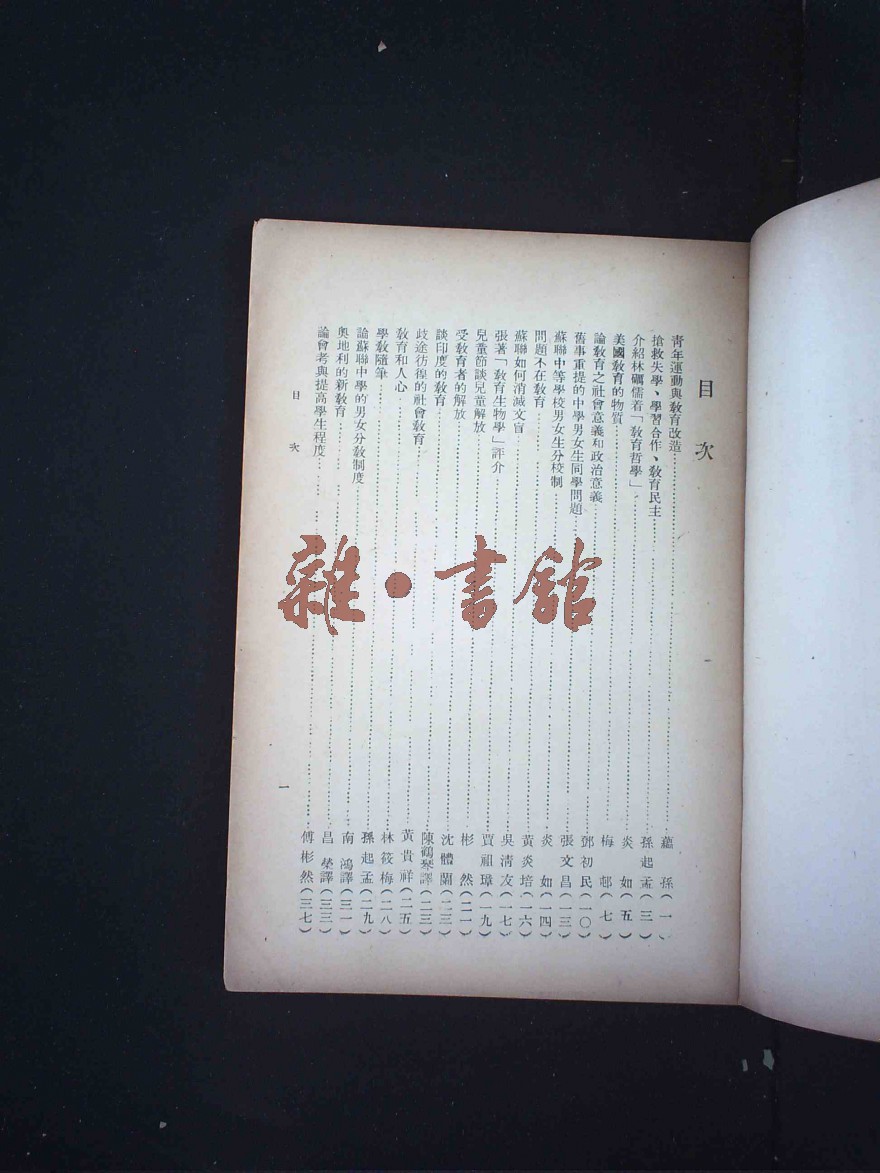 目次
青年運動與教育改造……蘊孫(一)
搶救失學、學習合作、教育民主……孫起孟(三)
介紹林礪儒着「教育哲學」……炎如(五)
美國教育的物質……梅邨(七)
論教育之社會意義和政治意義……鄧初民(一〇)
舊事重提的中學男女生同學問題……張文昌(一三)
蘇聯中等學校男女生分校制……炎如(一四)
問題不在教育……黃炎培(一六)
蘇聯如何消滅文盲……吳清友(一七)
張著「教育生物學」評介……賈祖璋(一九)
兒童節談兒童解放……彬然(二一)
受教育者的解放……沈體蘭(二三)
談印度的教育……陳鶴琴譯(二三)
歧途彷徨的社會教育……黃貴祥(二五)
教育和人心……林筱梅(二八)
學教隨筆……孫起孟(二九)
論蘇聯中學的男女分教制度……南鴻譯(三一)
奧地利的新教育……昌榮譯(三三)
論會考與提高學生程度……傅彬然(三七)
目次
一
雜·書館